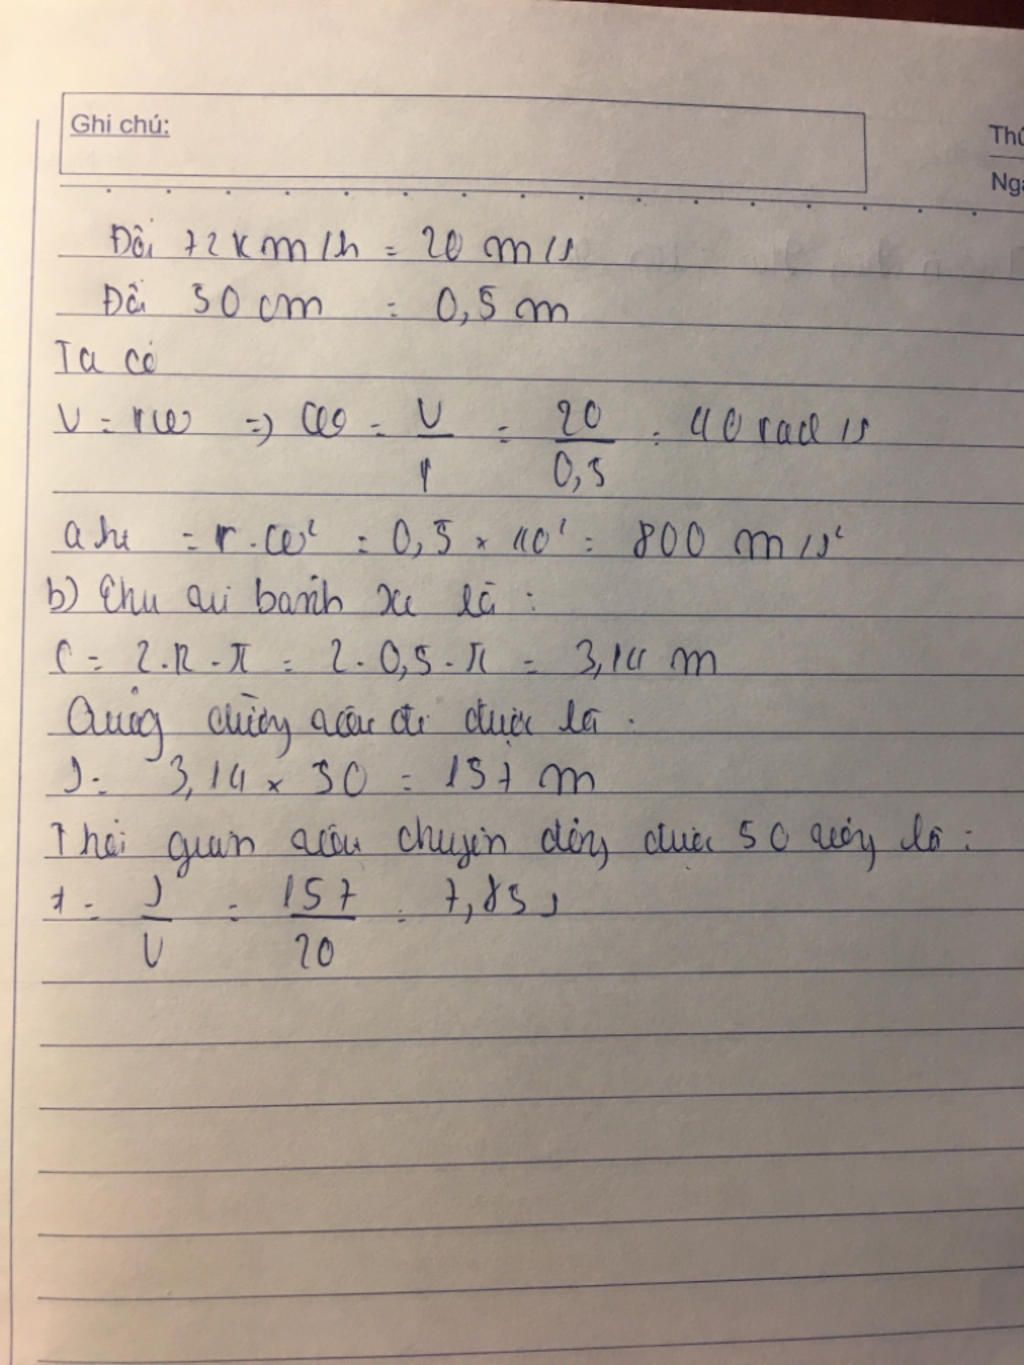 Ghi chú:
Thứ
Ngà
Đổi 72km/h = 20 m/s
Đổi 50 cm = 0,5 m
Ta có
v = rω => ω = v/r = 20/0,5 = 40 rad/s
a ht = r.ω² = 0,5 × 40² = 800 m/s²
b) Chu vi bánh xe là :
C = 2.R.π = 2.0,5.π = 3,14 m
Quãng đường xe đi được là :
S = 3,14 × 50 = 157 m
Thời gian xe chuyển động được 50 vòng là :
t = s/v = 157/20 = 7,85s